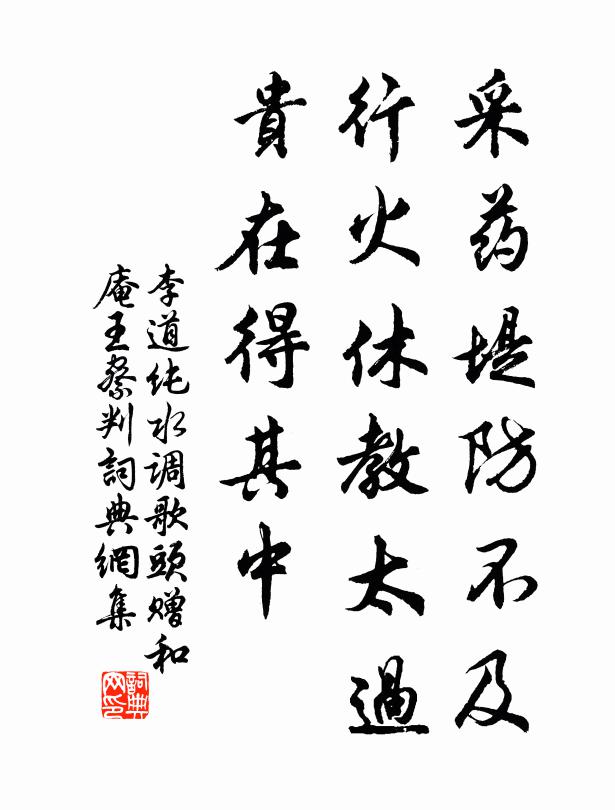 采药堤防不及
行火休教太過
貴在得其中
李道纯水调歌頭赠和
庵王察判詞典網集
詞典网印